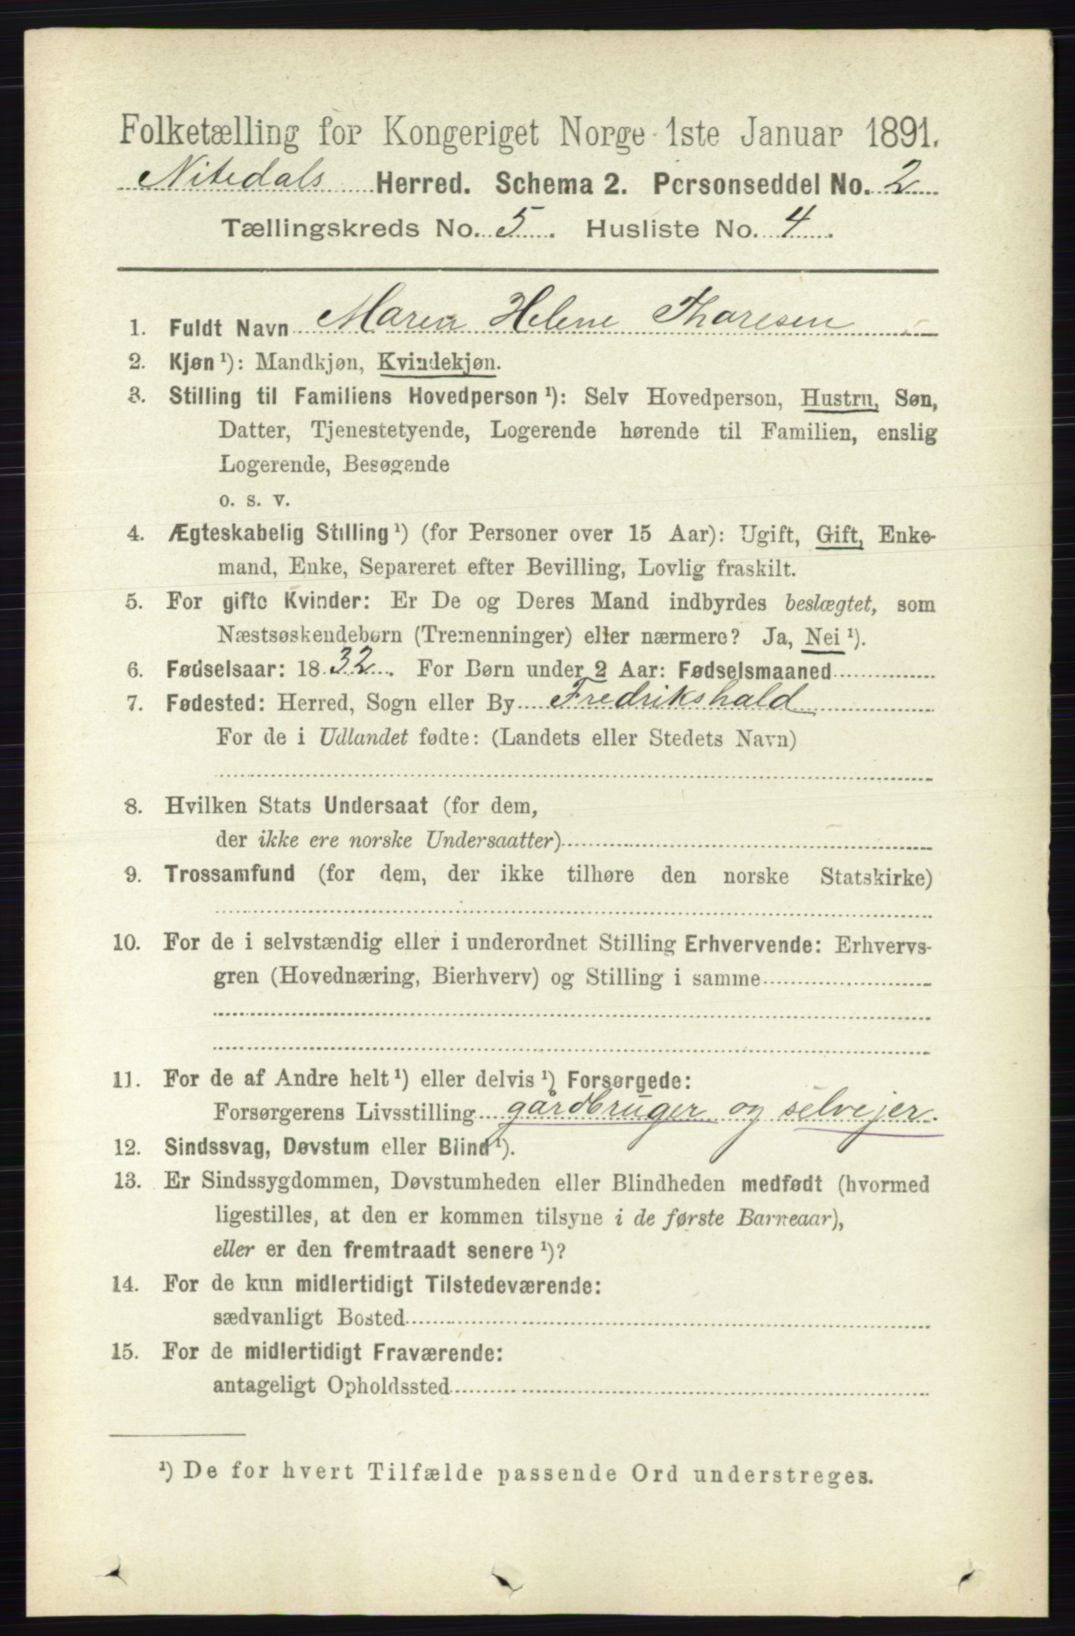 Folketælling for Kongeriget Norge 1ste Januar 1891.
Nitedals Herred. Schema 2. Personseddel No. 2
Tællingskreds No. 5. Husliste No. 4.
1. Fuldt Navn Maren Helene Thoresen
2. Kjøn ¹): Mandkjøn, Kvindekjøn.
3. Stilling til Familiens Hovedperson ¹): Selv Hovedperson, Hustru, Søn,
Datter, Tjenestetyende, Logerende hørende til Familien, enslig
Logerende, Besøgende
o. s. v.
4. Ægteskabelig Stilling ¹) (for Personer over 15 Aar): Ugift, Gift, Enke-
mand, Enke, Separeret efter Bevilling, Lovlig fraskilt.
5. For gifte Kvinder: Er De og Deres Mand indbyrdes beslægtet, som
Næstsøskendebørn (Tremenninger) eller nærmere? Ja, Nei ¹).
6. Fødselsaar: 1832. For Børn under 2 Aar: Fødselsmaaned
7. Fødested: Herred, Sogn eller By Fredrikshald
For de i Udlandet fødte: (Landets eller Stedets Navn)
8. Hvilken Stats Undersaat (for dem,
der ikke ere norske Undersaatter)
9. Trossamfund (for dem, der ikke tilhøre den norske Statskirke)
10. For de i selvstændig eller i underordnet Stilling Erhvervende: Erhvervs-
gren (Hovednæring, Bierhverv) og Stilling i samme
11. For de af Andre helt ¹) eller delvis ¹) Forsørgede:
Forsørgerens Livsstilling gårdbruger og selvejer.
12. Sindssvag, Døvstum eller Blind ¹).
13. Er Sindssygdommen, Døvstumheden eller Blindheden medfødt (hvormed
ligestilles, at den er kommen tilsyne i de første Barneaar),
eller er den fremtraadt senere ¹)?
14. For de kun midlertidigt Tilstedeværende:
sædvanligt Bosted
15. For de midlertidigt Fraværende:
antageligt Opholdssted
¹) De for hvert Tilfælde passende Ord understreges.